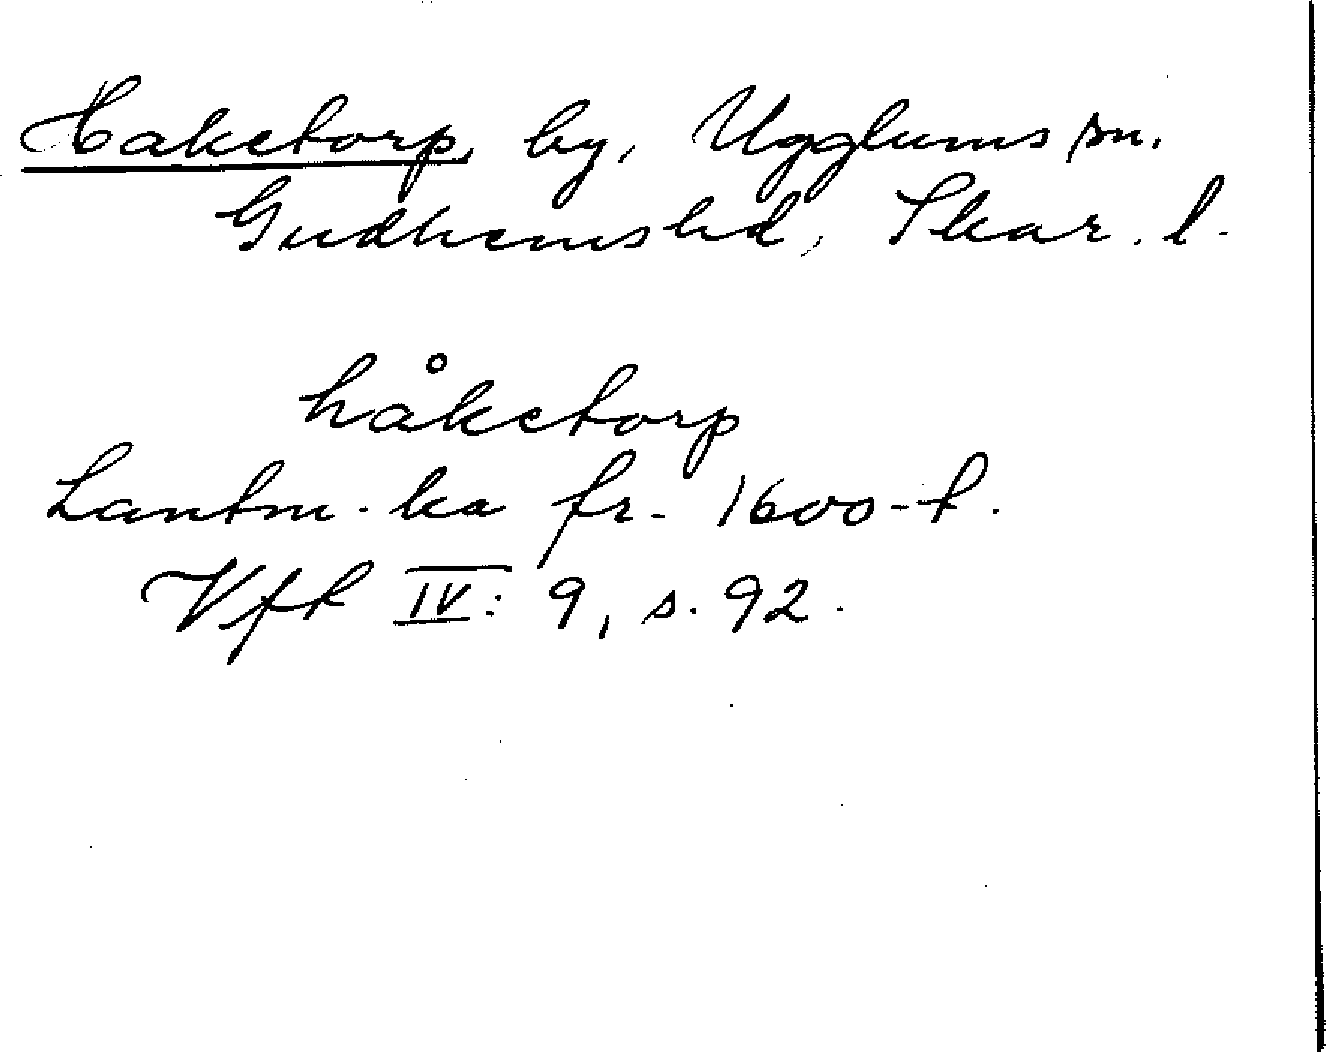 Haketorp, by, Ugglums sn.
Gudhems hd, Skar. l.
håketorp
Lantm. ka fr. 1600-t.
Vft IV: 9, s. 92.